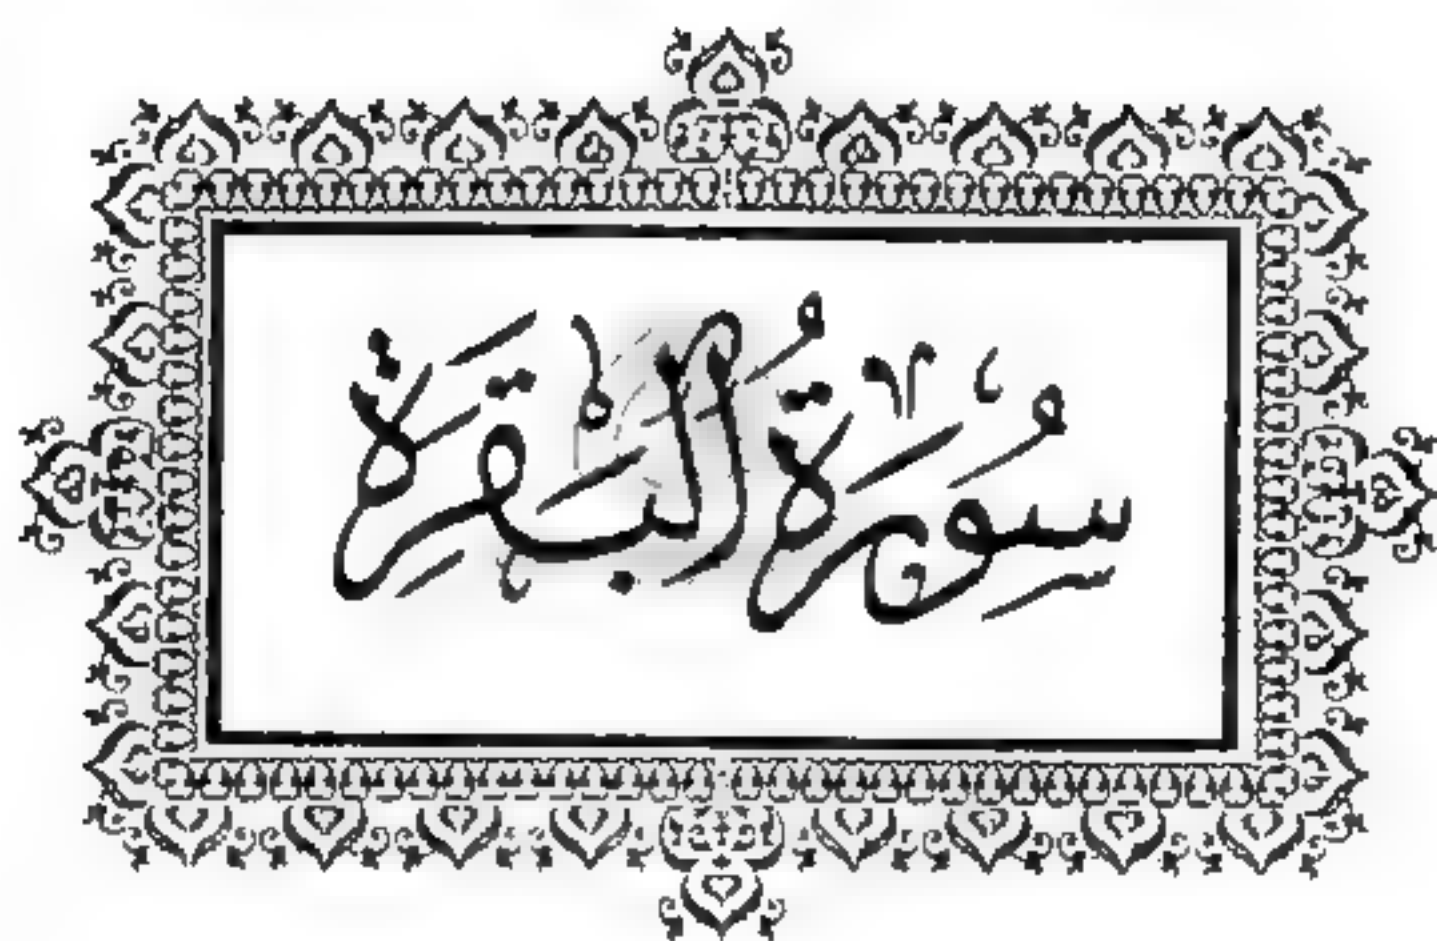 سُورَةُ الْبَقَرَةِ